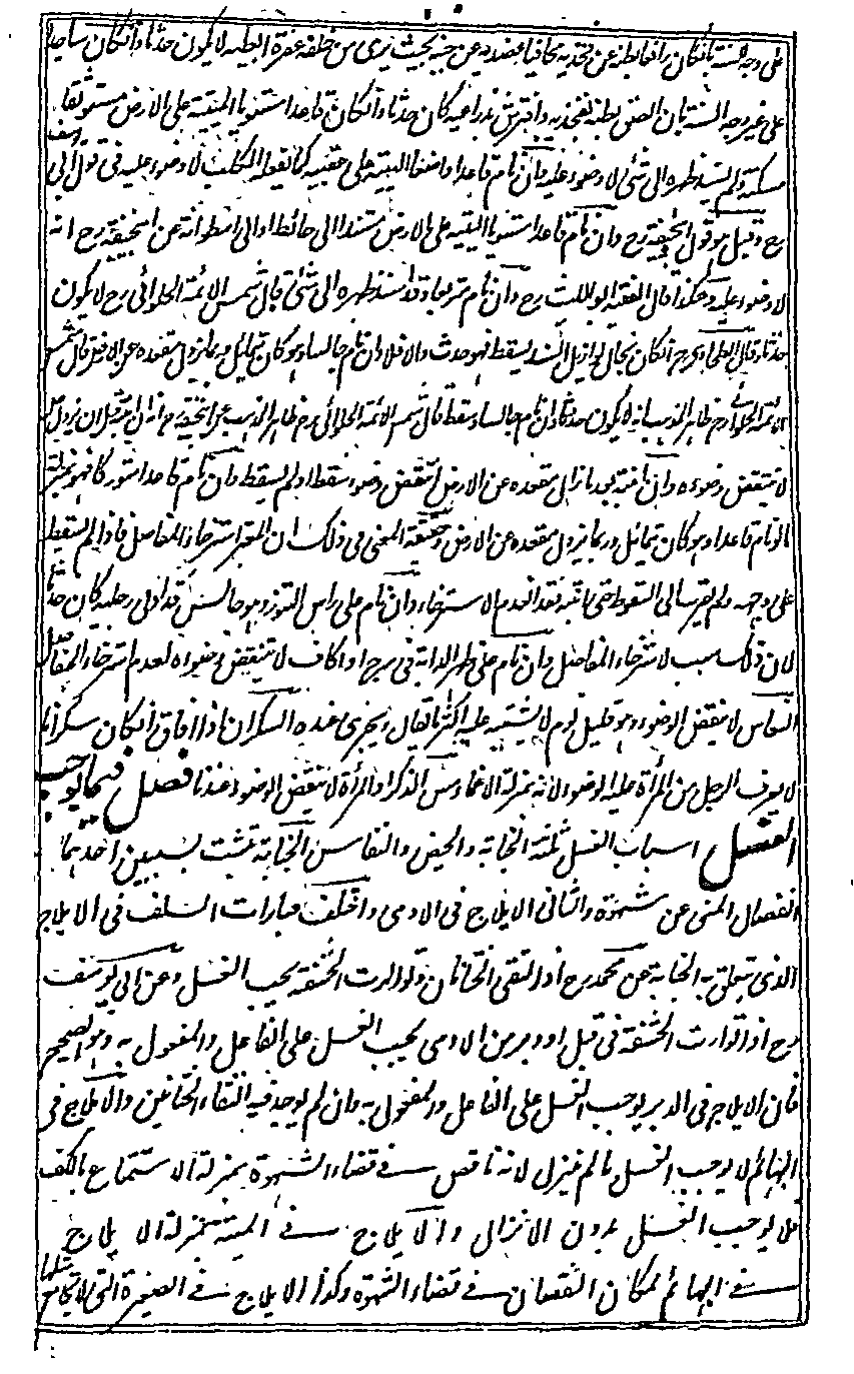 على وجه السنة بأن كان رافعا بطنه عن فخذيه مجافيا عضديه عن جنبيه بحيث يرى من خلفه عفرة ابطيه لا يكون حدثا وان كان ساجدا
على غير وجه السنة بان الصق بطنه بفخذيه وافترش ذراعيه كان حدثا وان كان قاعدا مستويا اليتيه على الارض مستوثقا
مسكته ولم يسند ظهره الى شئ لا وضوء عليه وان نام قاعدا واضعا اليتيه على عقبيه كما يفعله الكلب لا وضوء عليه في قول ابي يوسف
رح وقيل هو قول ابي حنيفة رح وان نام قاعدا مستويا اليتيه على الارض مستندا الى حائط او الى اسطوانة عن ابي حنيفة رح انه
لا وضوء عليه وهكذا قال الفقيه ابو الليث رح وان نام متربعا وقد اسند ظهره الى شئ قال شمس الائمة الحلوائي رح لا يكون
حدثا وقال الطحاوي رح ان كان بحال لو ازيل السند يسقط فهو حدث والا فلا وان نام جالسا وهو كان يتمايل وربما يزول مقعده عن الارض قال شمس
الائمة الحلوائي رح ظاهر المذهب انه لا يكون حدثا وان نام جالسا وسقط قال شمس الائمة الحلوائي رح ظاهر المذهب عن ابي حنيفة رح انه ان انتبه قبل ان يزول
لا ينتقض وضوءه وان انتبه بعد ما زال مقعده عن الارض انتقض وضوءه سقط او لم يسقط وان نام قاعدا متوركا فهو بمنزلة
ما لو نام قاعدا وهو كان يتمايل وربما يزول مقعده عن الارض وحقيقة المعنى في ذلك ان المعتبر استرخاء المفاصل فاذا لم يسقط
على وجهه ولم يقرب الى السقوط حتى انتبه فقد انعدم الاسترخاء وان نام على راس التنور وهو جالس قد ادلى رجليه كان حدثا
لان ذلك سبب لاسترخاء المفاصل وان نام على ظهر الدابة في سرج او اكاف لا ينتقض وضوءه لعدم استرخاء المفاصل
النعاس لا ينقض الوضوء وهو قليل نوم لا يشتبه عليه اكثر ما يقال ويجري عنده السكران اذا افاق ان كان سكرانا
لا يعرف الرجل من المرأة عليه الوضوء لانه بمنزلة الاغماء ومس الذكر والمرأة لا ينقض الوضوء عندنا فصل فيما يوجب
الغسل اسباب الغسل ثلثة الجنابة والحيض والنفاس الجنابة تثبت بسببين احدهما
انفصال المني عن شهوة والثاني الايلاج في الادمي واختلف عبارات السلف في الايلاج
الذي يتعلق به الجنابة عن محمد رح اذا التقى الختانان وتوارت الحشفة يجب الغسل وعن ابي يوسف
رح اذا توارت الحشفة في قبل او دبر من الادمي يجب الغسل على الفاعل والمفعول به وهو الصحيح
فان الايلاج في الدبر يوجب الغسل على الفاعل والمفعول به وان لم يوجد فيه التقاء الختانين والايلاج في
البهائم لا يوجب الغسل ما لم ينزل لانه ناقص في قضاء الشهوة بمنزلة الاستمتاع بالكف
فلا يوجب الغسل بدون الانزال والايلاج في الميتة بمنزلة الايلاج
في البهائم لمكان النقصان في قضاء الشهوة وكذا الايلاج في الصغيرة التي لا يجامع مثلها